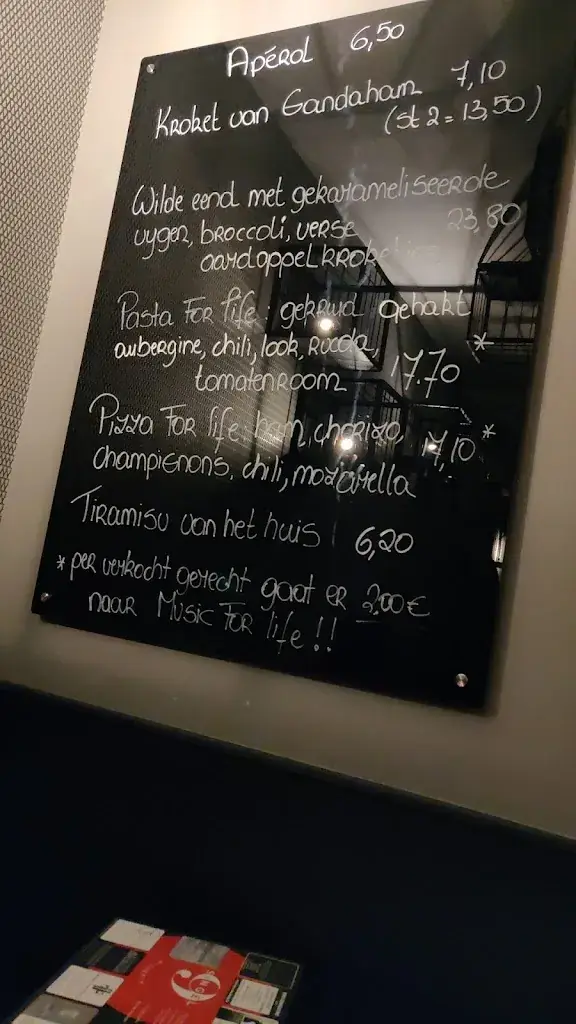 Apérol 6,50
Kroket van Gandaham 7,10
(st 2 = 13,50)
Wilde eend met gekarameliseerde
vygen, broccoli, verse 23,80
aardappelkroke
Pasta For life: gekruid gehakt
aubergine, chili, look, rucola, 17.70 *
tomatenroom
Pizza For life: ham, chorizo, 17,10 *
champignons, chili, mozarella
Tiramisu van het huis 6,20
* per verkocht gerecht gaat er 2,00€
naar Music For life!!